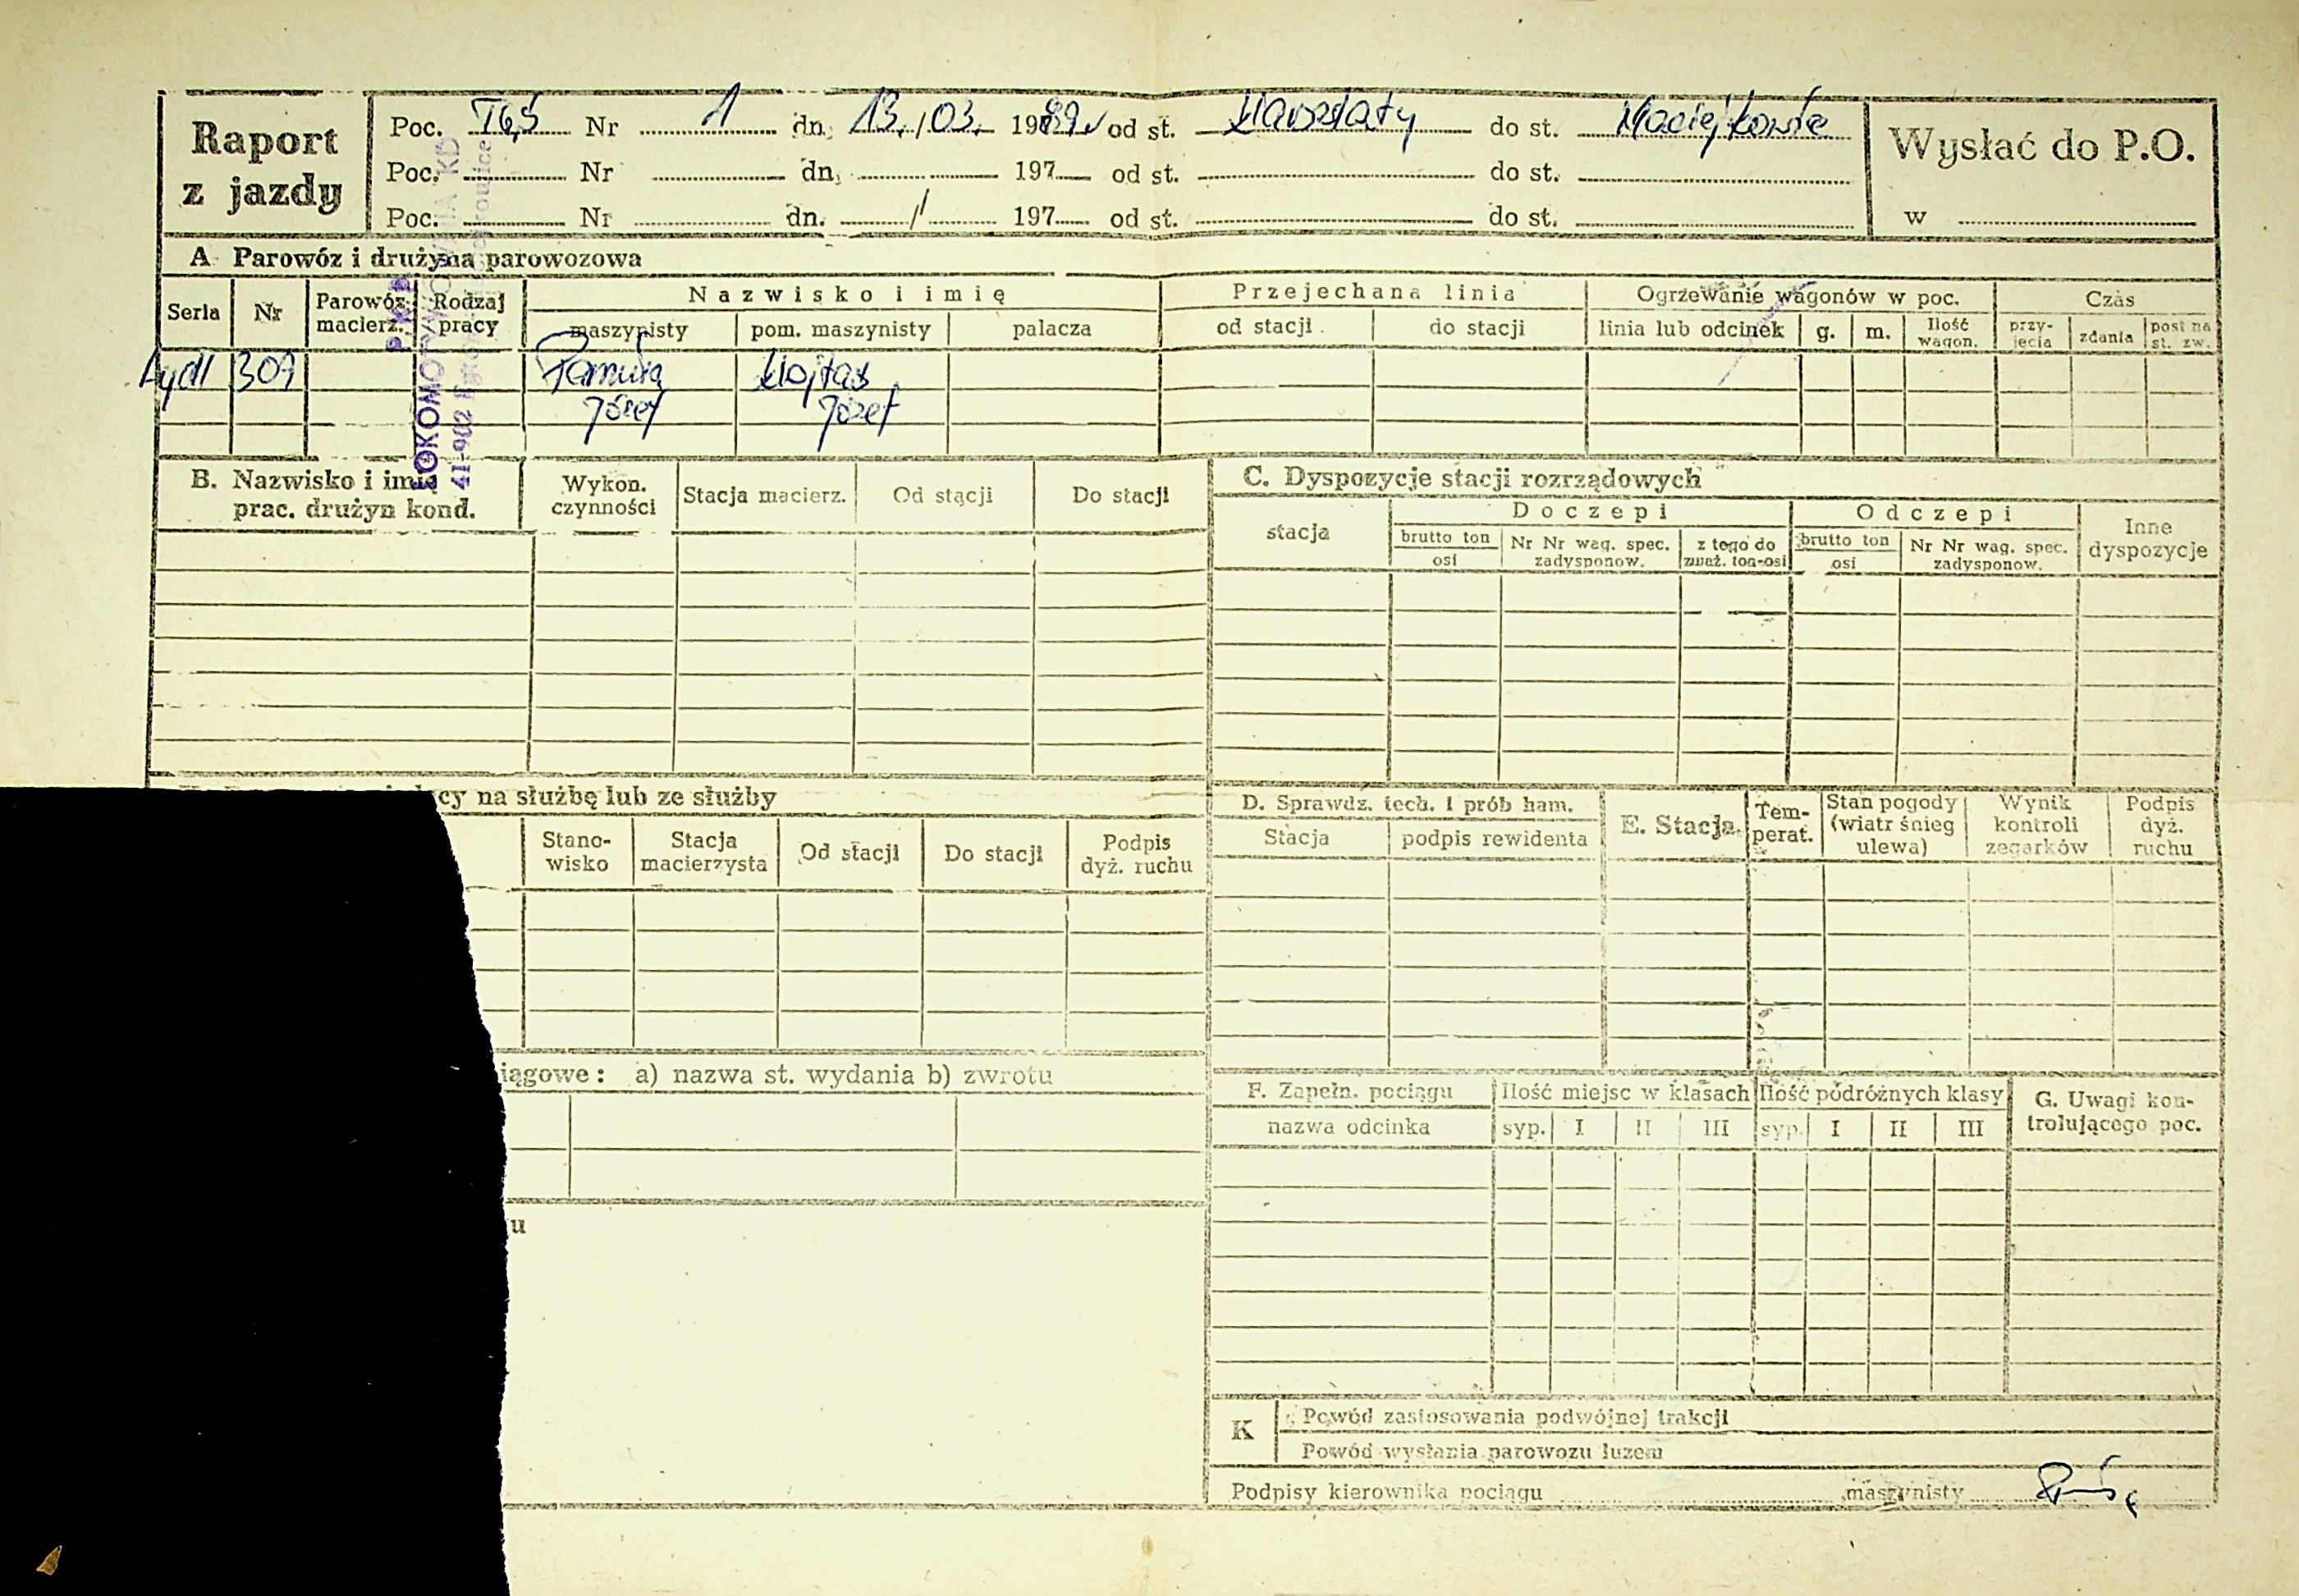 Raport z jazdy
Poc. TGS Nr 1 dn. 13./03. 1989r od st. Warsztaty do st. Maciejkowie
Poc. Nr dn. 197 od st. do st.
Poc. Nr dn. / 197 od st. do st.
Wysłać do P.O.
w
A Parowóz i drużyna parowozowa
Seria Nr Parowóz macierz. Rodzaj pracy
Nazwisko i imię
maszynisty pom. maszynisty palacza
Przejechana linia
od stacji do stacji
Ogrzewanie wagonów w poc.
linia lub odcinek g. m. Ilość wagon.
Czas
przyjęcia zdania post na st. zw.
Lyd1 309 Wojtas
Józef Józef
PKP
LOKOMOTYWOWNIA KD
41-902
B. Nazwisko i imię prac. drużyn kond.
Wykon. czynności Stacja macierz. Od stacji Do stacji
C. Dyspozycje stacji rozrządowych
stacja
Doczepi
brutto ton osi Nr Nr wag. spec. zadysponow. z tego do zważ. ton-osi
Odczepi
brutto ton osi Nr Nr wag. spec. zadysponow.
Inne dyspozycje
cy na służbę lub ze służby
Stano-
wisko
Stacja macierzysta Od stacji Do stacji Podpis dyż. ruchu
D. Sprawdz. tech. i prób ham.
Stacja podpis rewidenta
E. Stacja
Tem-
perat.
Stan pogody (wiatr śnieg ulewa)
Wynik kontroli zegarków
Podpis dyż. ruchu
iągowe: a) nazwa st. wydania b) zwrotu
u
F. Zapełn. pociągu
nazwa odcinka
Ilość miejsc w klasach
syp. I II III
Ilość podróżnych klasy
syp. I II III
G. Uwagi kon-
trolującego poc.
K Powód zastosowania podwójnej trakcji
Powód wysłania parowozu luzem
Podpisy kierownika pociągu maszynisty